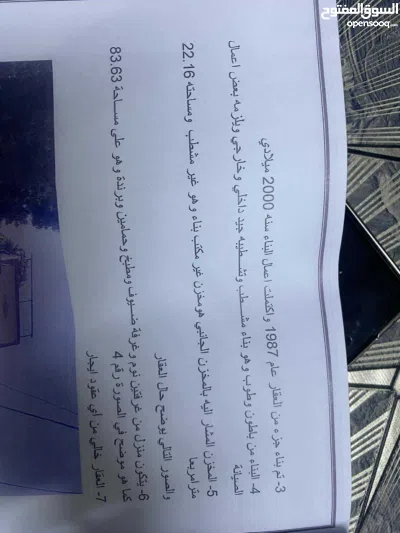 السوق المفتوح
opensooq.com
3- تم بناء جزء من العقار عام 1987 واكتملت اعمال البناء سنه 2000 ميلادي
4- البناء من باطون وطوب وهو بناء مشطب وتشطيبه جيد داخلي وخارجي ويلزمه بعض اعمال
الصيانة
5- المخزن المشار اليه بالمخزن الجانبي هو مخزن غير مكتب بناء وهو غير مشطب ومساحته 22.16
متر امربعا
والصور التالي يوضح حال العقار
6- يتكون منزل من غرفتين نوم وغرفة ضيوف ومطبخ وحمامين وبرندة وهو على مساحة 83.63
كما هو موضح في الصورة رقم 4
7- العقار خالي من اي عقود ايجار